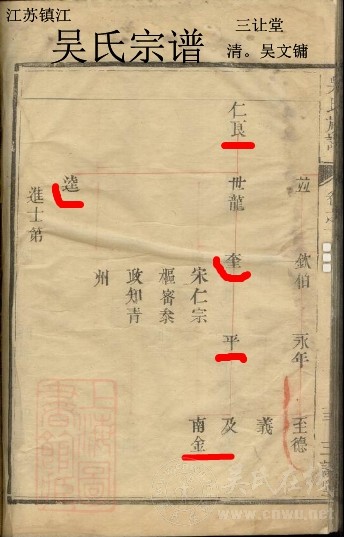 江苏镇江
吴氏宗谱
三让堂
清。吴文镛
仁良
並
世龍
逵
進士第
欽伯
奎
宋仁宗
樞密叅
政知青
州
永年
平
至德
義
及
南金
吴氏在线
www.cnwu.net